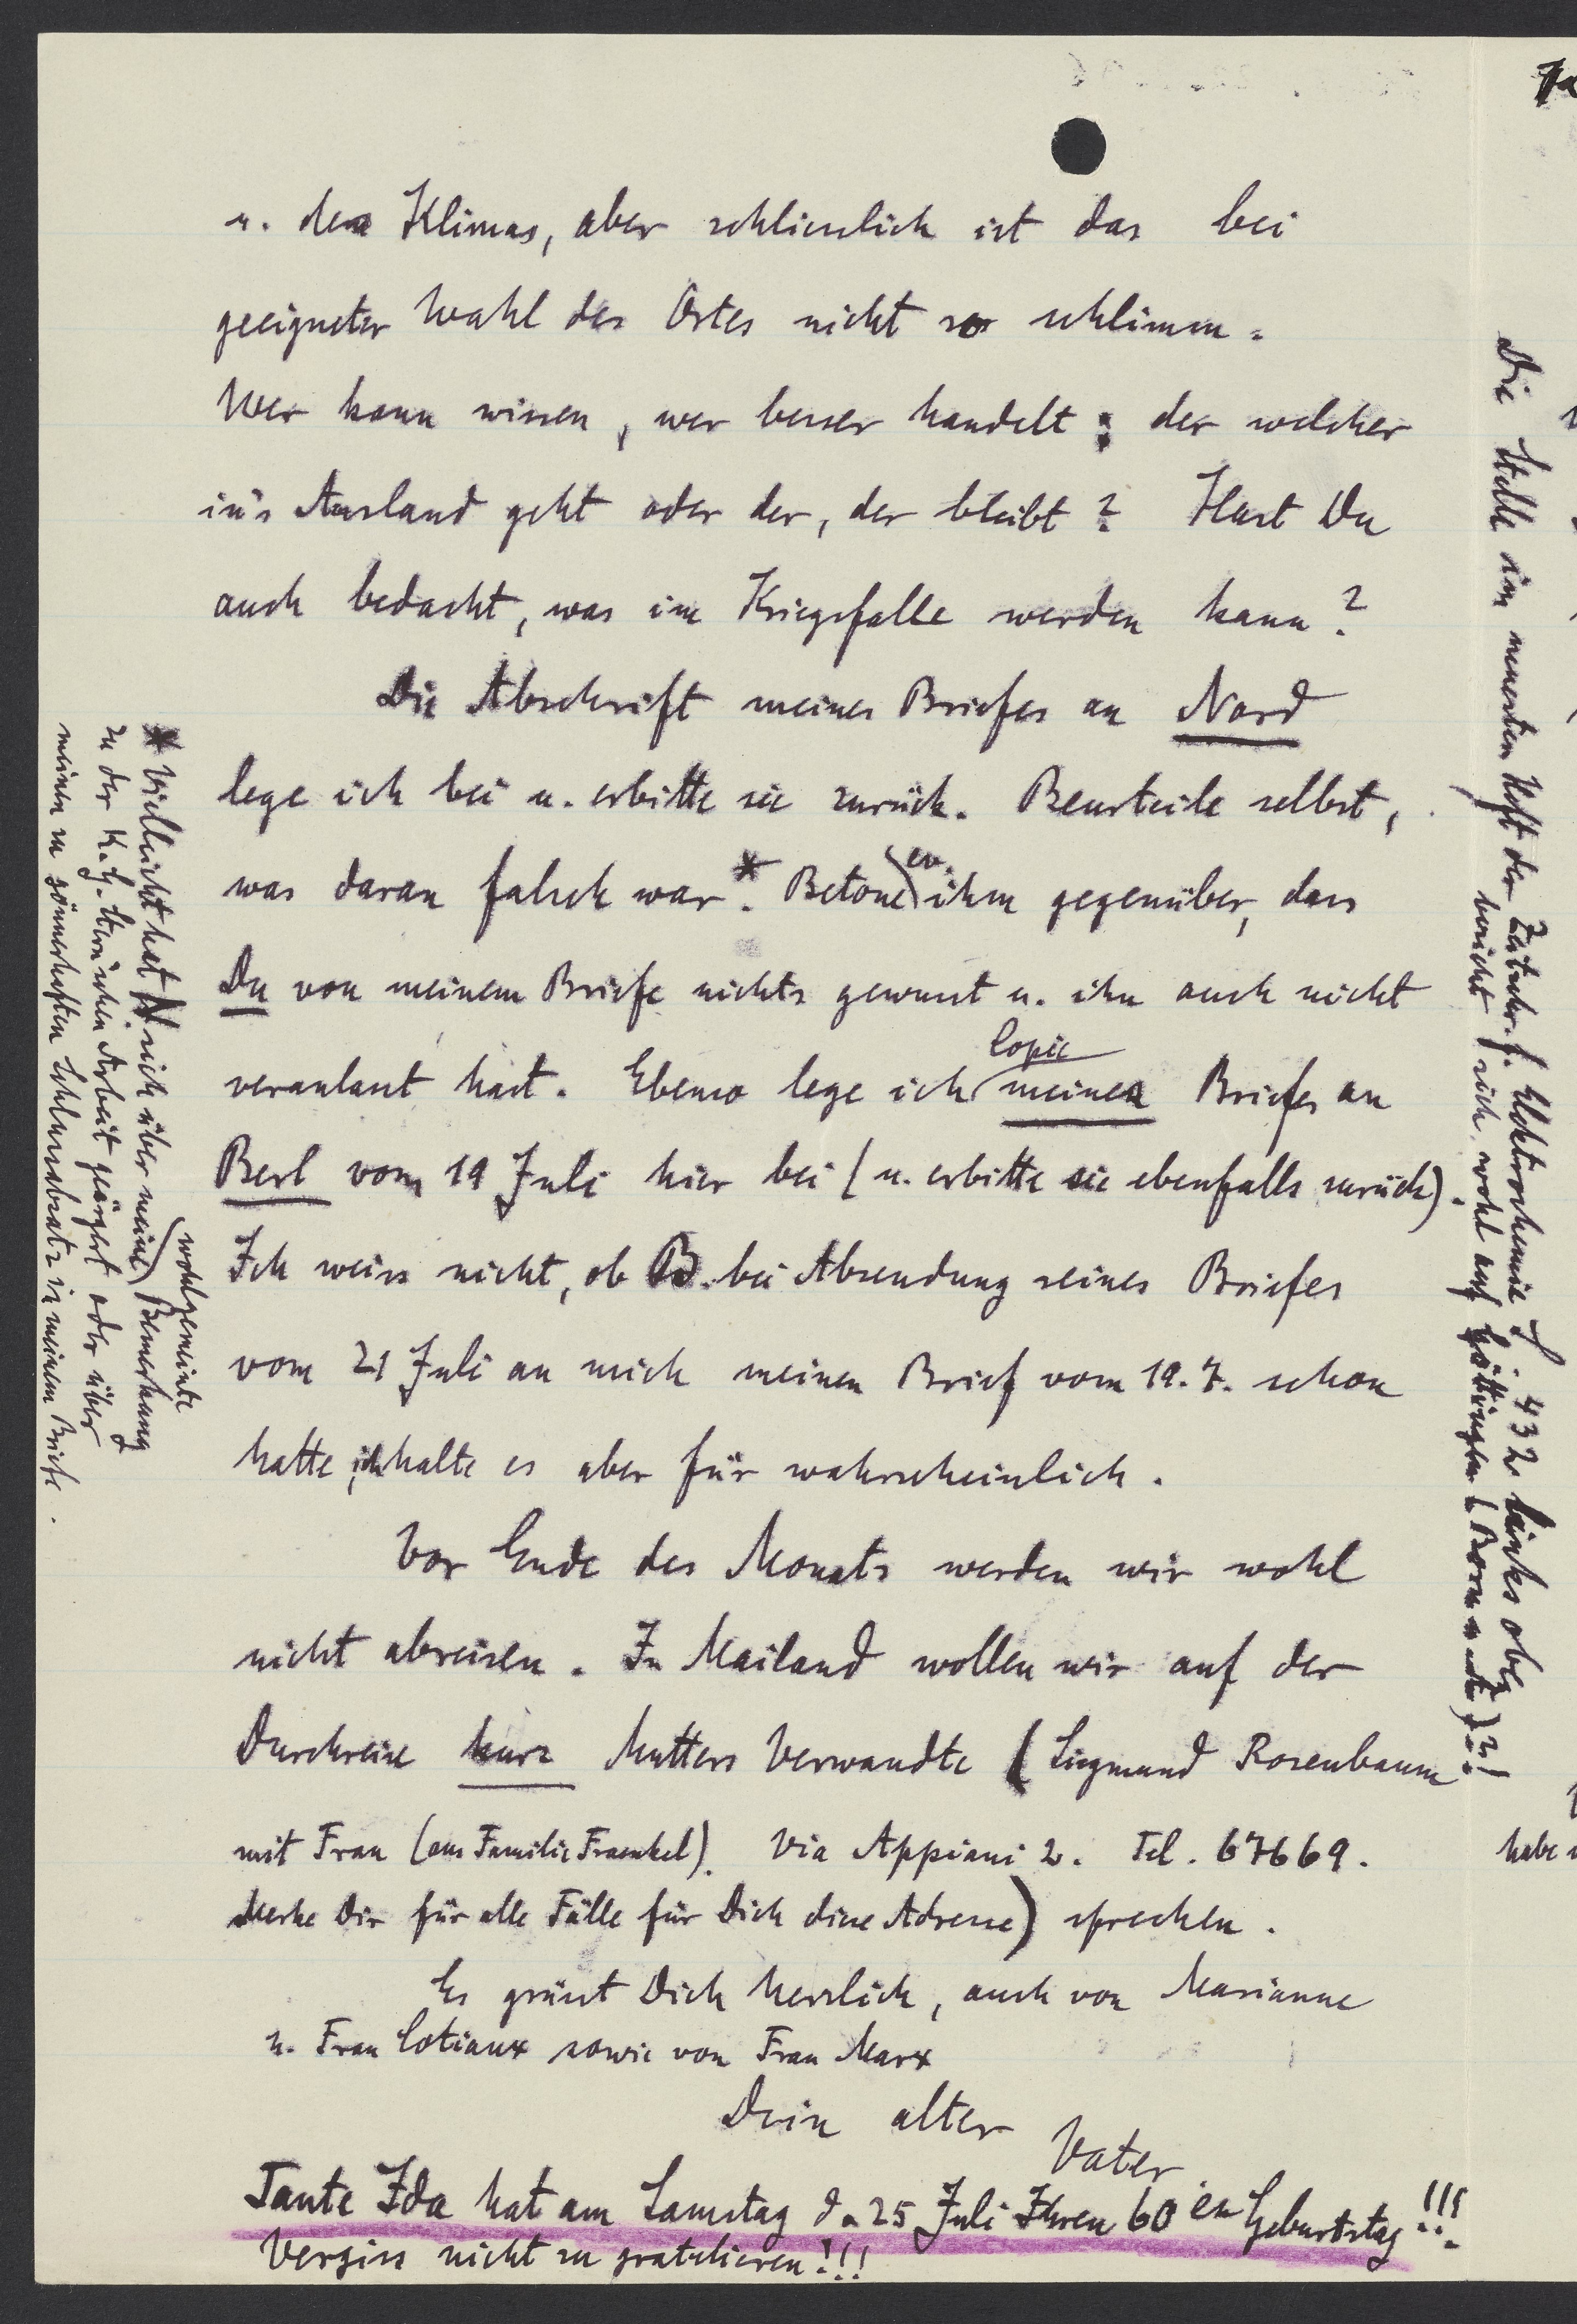 u. des Klimas, aber schliesslich ist das bei
geeigneter Wahl des Ortes nicht so schlimm.
Wer kann wissen, wer besser handelt: der welcher
in's Ausland geht oder der, der bleibt? Hast Du
auch bedacht, was im Kriegsfalle werden kann?
Die Abschrift meines Briefes an Nord
lege ich bei u. erbitte sie zurück. Beurteile selbst,
was daran falsch war.* Betone ev. ihm gegenüber, dass
Du von meinem Briefe nichts gewusst u. ihn auch nicht
veranlasst hast. Ebenso lege ich Copie meines Briefes an
Berl vom 19 Juli hier bei (u. erbitte sie ebenfalls zurück).
Ich weiss nicht, ob B. bei Absendung seines Briefes
vom 21 Juli an mich meinen Brief vom 19.7. schon
hatte, ich halte es aber für wahrscheinlich.
Vor Ende des Monats werden wir wohl
nicht abreisen. In Mailand wollen wir auf der
Durchreise kurz Mutters Verwandte (Siegmund Rosenbaum
mit Frau (aus Familie Fraenkel). Via Appiani 2. Tel. 67669.
Merke Dir für alle Fälle für Dich diese Adresse) sprechen.
Es grüsst Dich herzlich, auch von Marianne
u. Frau Cotiaux sowie von Frau Marx
Dein alter
Vater
Tante Ida hat am Samstag d. 25 Juli Ihren 60 en Geburtstag!!!
Vergiss nicht zu gratulieren!!!
* Vielleicht hat N sich über meine wohlgemeinte Bemerkung
zu der K.G. Stern'schen Arbeit geärgert oder über
meinen zu gönnerhaften Schlussabsatz in meinem Briefe.
Die Stelle im neuesten Heft der Zeitschr. f. Elektrochemie S. 432 links oben
bezieht sich wohl auf Göttingen (Born u. ) ?!
habe